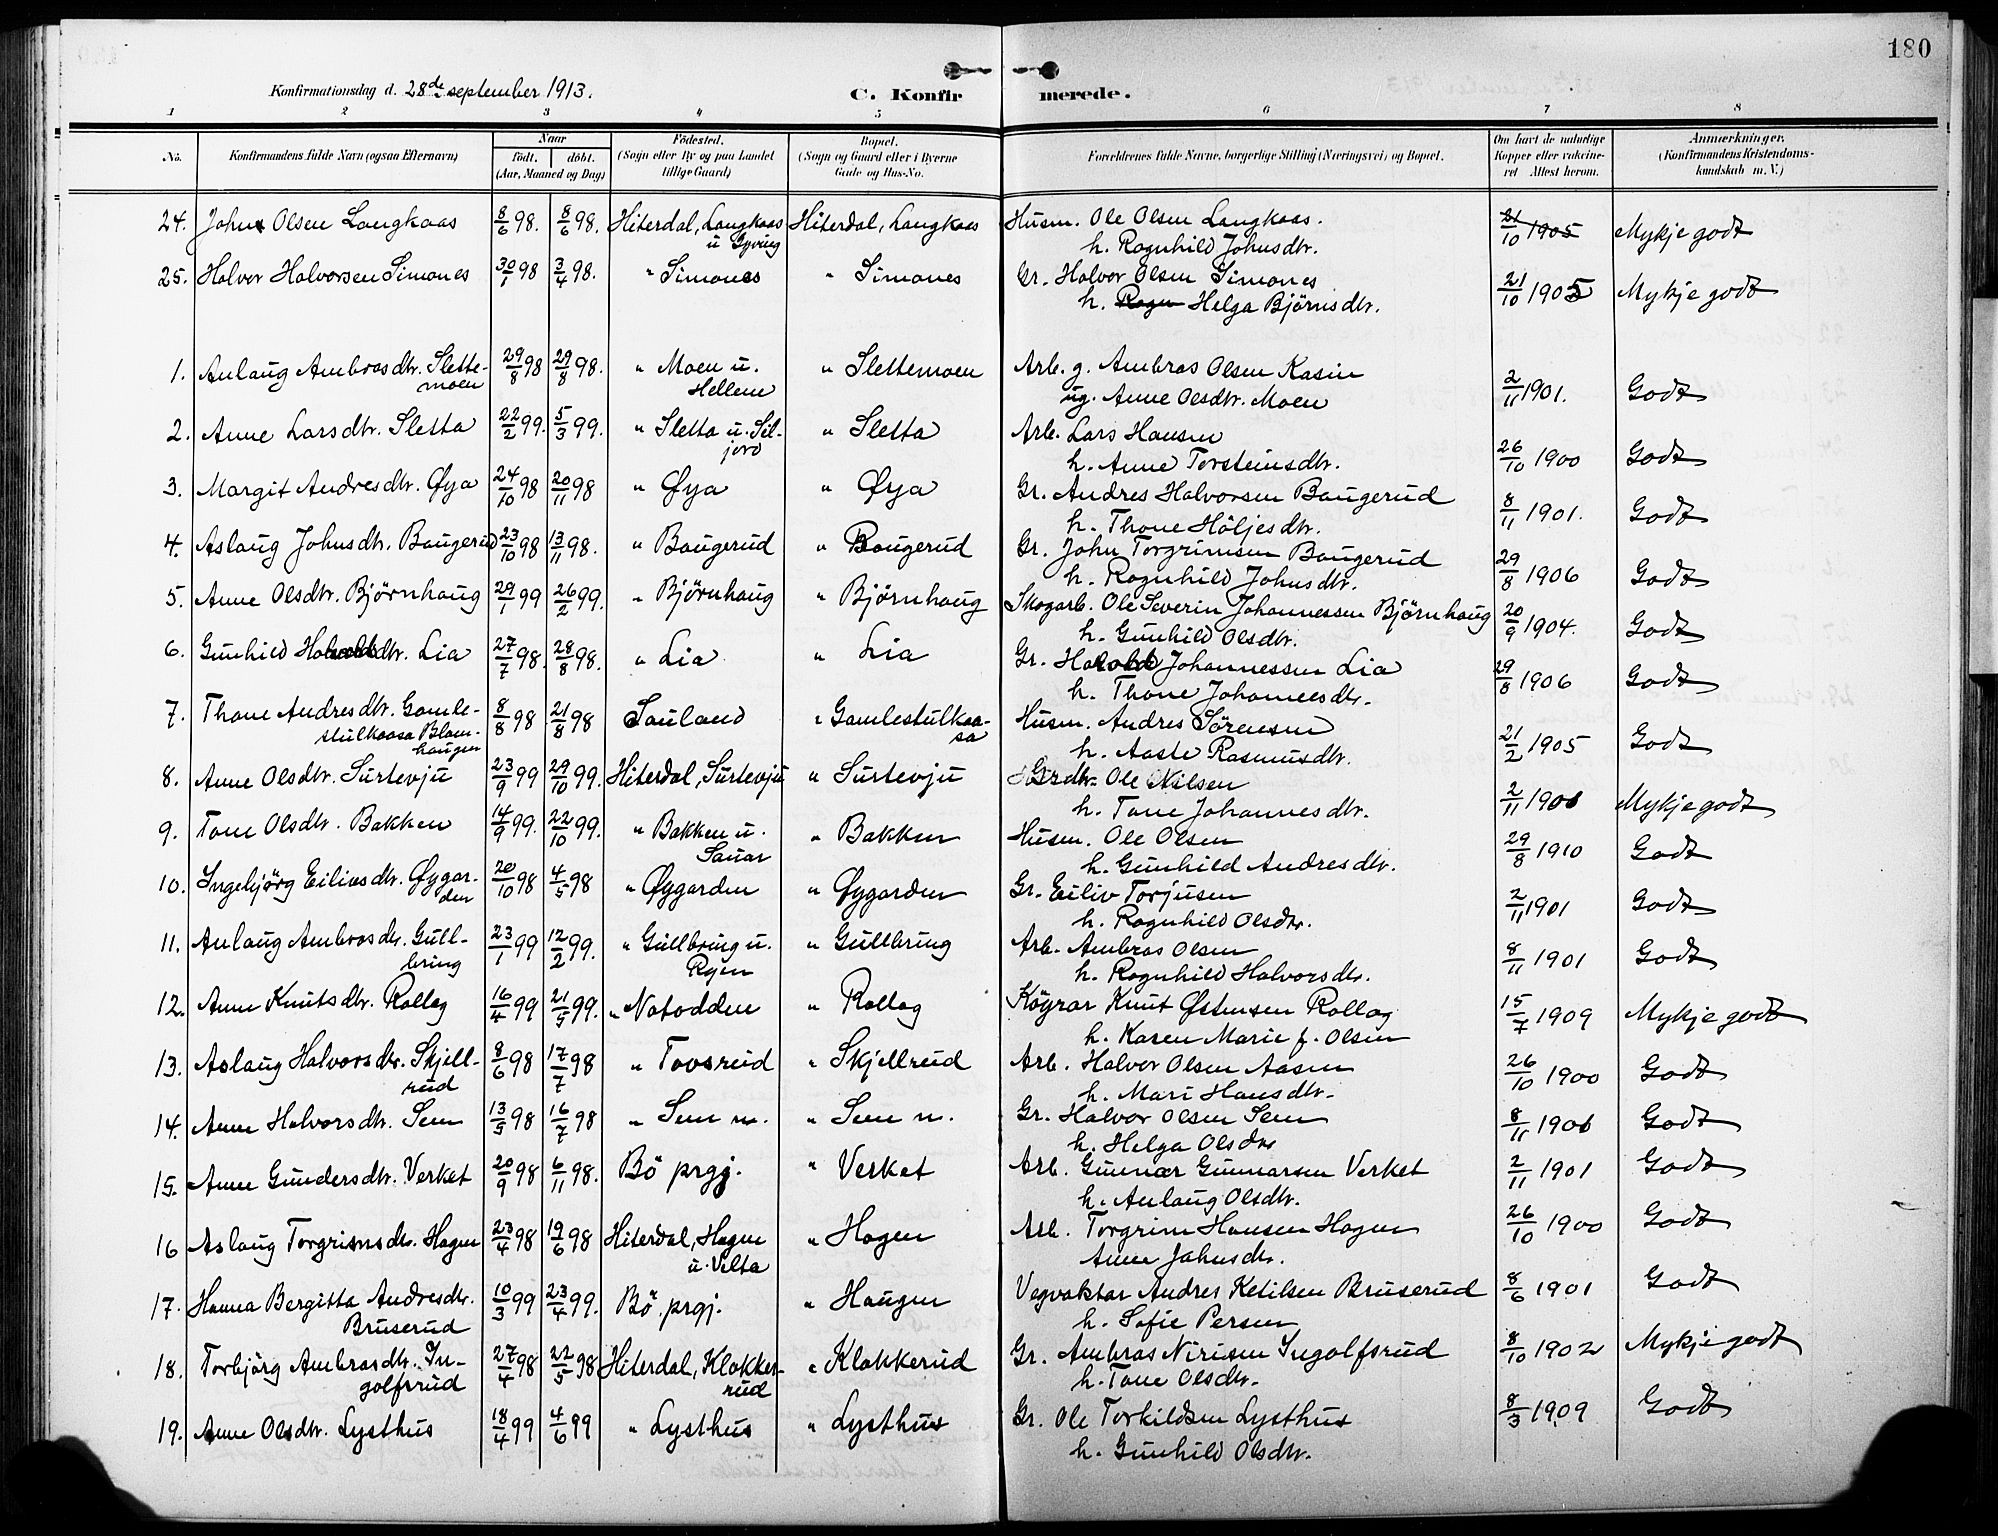 180
Konfirmationsdag d. 28de september 1913. C. Konfirmerede.
1 2 3 4 5 6 7 8
No. Konfirmandens fulde Navn (ogsaa Efternavn) Naar födt. döbt. (Aar, Maaned og Dag) Födested. (Sogn eller By og paa Landet tillige Gaard) Bopæl. (Sogn og Gaard eller i Byerne Gade og Hus-No. Forældrenes fulde Navne, borgerlige Stilling (Næringsvei) og Bopæl. Om havt de naturlige Kopper eller vakcineret Attest herom. Anmærkninger. (Konfirmandens Kristendomskundskab m. V.)
24. John Olsen Langkaas 8/6 98. 8/6 98. Hiterdal, Langkaas Hiterdal, Langkaas Husm. Ole Olsen Langkaas. 21/10 1905 Mykje godt
u Gyving h. Ragnhild Johnsdtr.
25. Halvor Halvorsen Simones 30/1 98 3/4 98. " Simones " Simones Gr. Halvor Olsen Simones 21/10 1905 Mykje godt
h. Ragn Helga Björnsdtr.
1. Anlaug Ambrosdtr. Slette- 29/8 98 29/8 98. " Moen u. " Slettemoen Arb. g. Ambros Olsen Kasin 2/11 1901. Godt
moen Hellem ug. Anne Olsdtr. Moen
2. Anne Larsdtr. Sletta 22/2 99. 5/3 99. " Sletta u. Sil- " Sletta Arb. Lars Hansen 26/10 1900 Godt
jord h. Anne Torsteinsdtr.
3. Margit Andresdtr. Øya 24/10 98 20/11 98 " Øya " Øya Gr. Andres Halvorsen Baugerud 8/11 1901. Godt
h. Thone Höljesdtr.
4. Aslaug Johnsdtr. Baugerud 23/10 98 13/11 98. " Baugerud " Baugerud Gr. John Torgrimsen Baugerud 29/8 1906 Godt
h. Ragnhild Johnsdtr.
5. Anne Olsdtr. Bjørnhaug 29/1 99 26/2 99. " Bjørnhaug " Bjørnhaug Skogarb. Ole Severin Johannessen Bjørnhaug 20/9 1904. Godt
h. Gunhild Olsdtr.
6. Gunhild dtr. Lia 27/7 98. 28/8 98. " Lia " Lia Gr. Johannessen Lia 29/8 1906 Godt
h. Thone Johannesdtr.
7. Thone Andresdtr. Gamle- 8/8 98 21/8 98 Sauland " Gamlestulkaa- Husm. Andres Sörensen 21/2 1905 Godt
stulkaasa Blom- sa h. Aaste Rasmusdtr.
haugen
8. Anne Olsdtr. Surtevju 23/9 99 29/10 99. Hiterdal, Surtevju " Surtevju Ole Nilsen 2/11 1901 Mykje godt
h. Tone Johannesdtr.
9. Tone Olsdtr. Bakken 14/9 99. 22/10 99. " Bakken u. " Bakken Husm. Ole Olsen 29/8 1910 Godt
Sauar h. Gunhild Andresdtr.
10. Ingebjörg Eilivsdtr. Øygar- 20/10 98 4/5 98 " Øygarden " Øygarden Gr. Eiliv Torjusen 2/11 1901 Godt
den h. Ragnhild Olsdtr.
11. Anlaug Ambrosdtr. Gull- 23/1 99 12/2 99. " Gullbring u. " Gullbring Arb. Ambros Olsen 8/11 1901 Godt
bring Ryen h. Ragnhild Halvorsdtr.
12. Anne Knutsdtr. Rollag 16/4 99 21/5 99. " Notodden " Rollag Köyrar Knut Østensen Rollag 15/7 1909 Mykje godt
h. Karen Marie f. Olsen
13. Aslaug Halvorsdtr. Skjell- 8/6 98 17/7 98 " Tovsrud " Skjellrud Arb. Halvor Olsen Aasen 26/10 1900 Godt
rud h. Mari Hansdtr.
14. Anne Halvorsdtr. Sem 13/5 98 16/7 98 " Sem n. " Sem n. Gr. Halvor Olsen Sem 8/11 1901 Godt
h. Helga Olsdtr
15. Anne Gundersdtr. Verket 20/9 98 6/11 98. Bö prgj. " Verket Arb. Gunnar Gunnarsen Verket 2/11 1901 Godt
h. Anlaug Olsdtr.
16 Aslaug Torgrimsdtr. Hagen 23/4 98 19/6 98 Hiterdal, Hagen " Hagen Arb. Torgrim Hansen Hagen 26/10 1900 Godt
u. Velta Anne Jahnsdtr.
17. Hanna Bergitta Andresdtr. 10/3 99 23/4 99. Bö prgj. " Haugen Vegvaktar Andres Ketilsen Bruserud 8/6 1901 Godt
Bruserud h. Sofie Persen
18. Torbjörg Ambrosdtr. In- 27/4 98 22/5 98 Hiterdal, Klokke- " Klokkerud Gr. Ambros Nirisen Ingolfsrud 8/10 1902 Mykje godt
golfsrud rud h. Tone Olsdtr.
19. Anne Olsdtr. Lysthus 18/4 99 4/6 99 " Lysthus " Lysthus Gr. Ole Torkildsen Lysthus 8/3 1909 Godt
h. Gunhild Olsdtr.